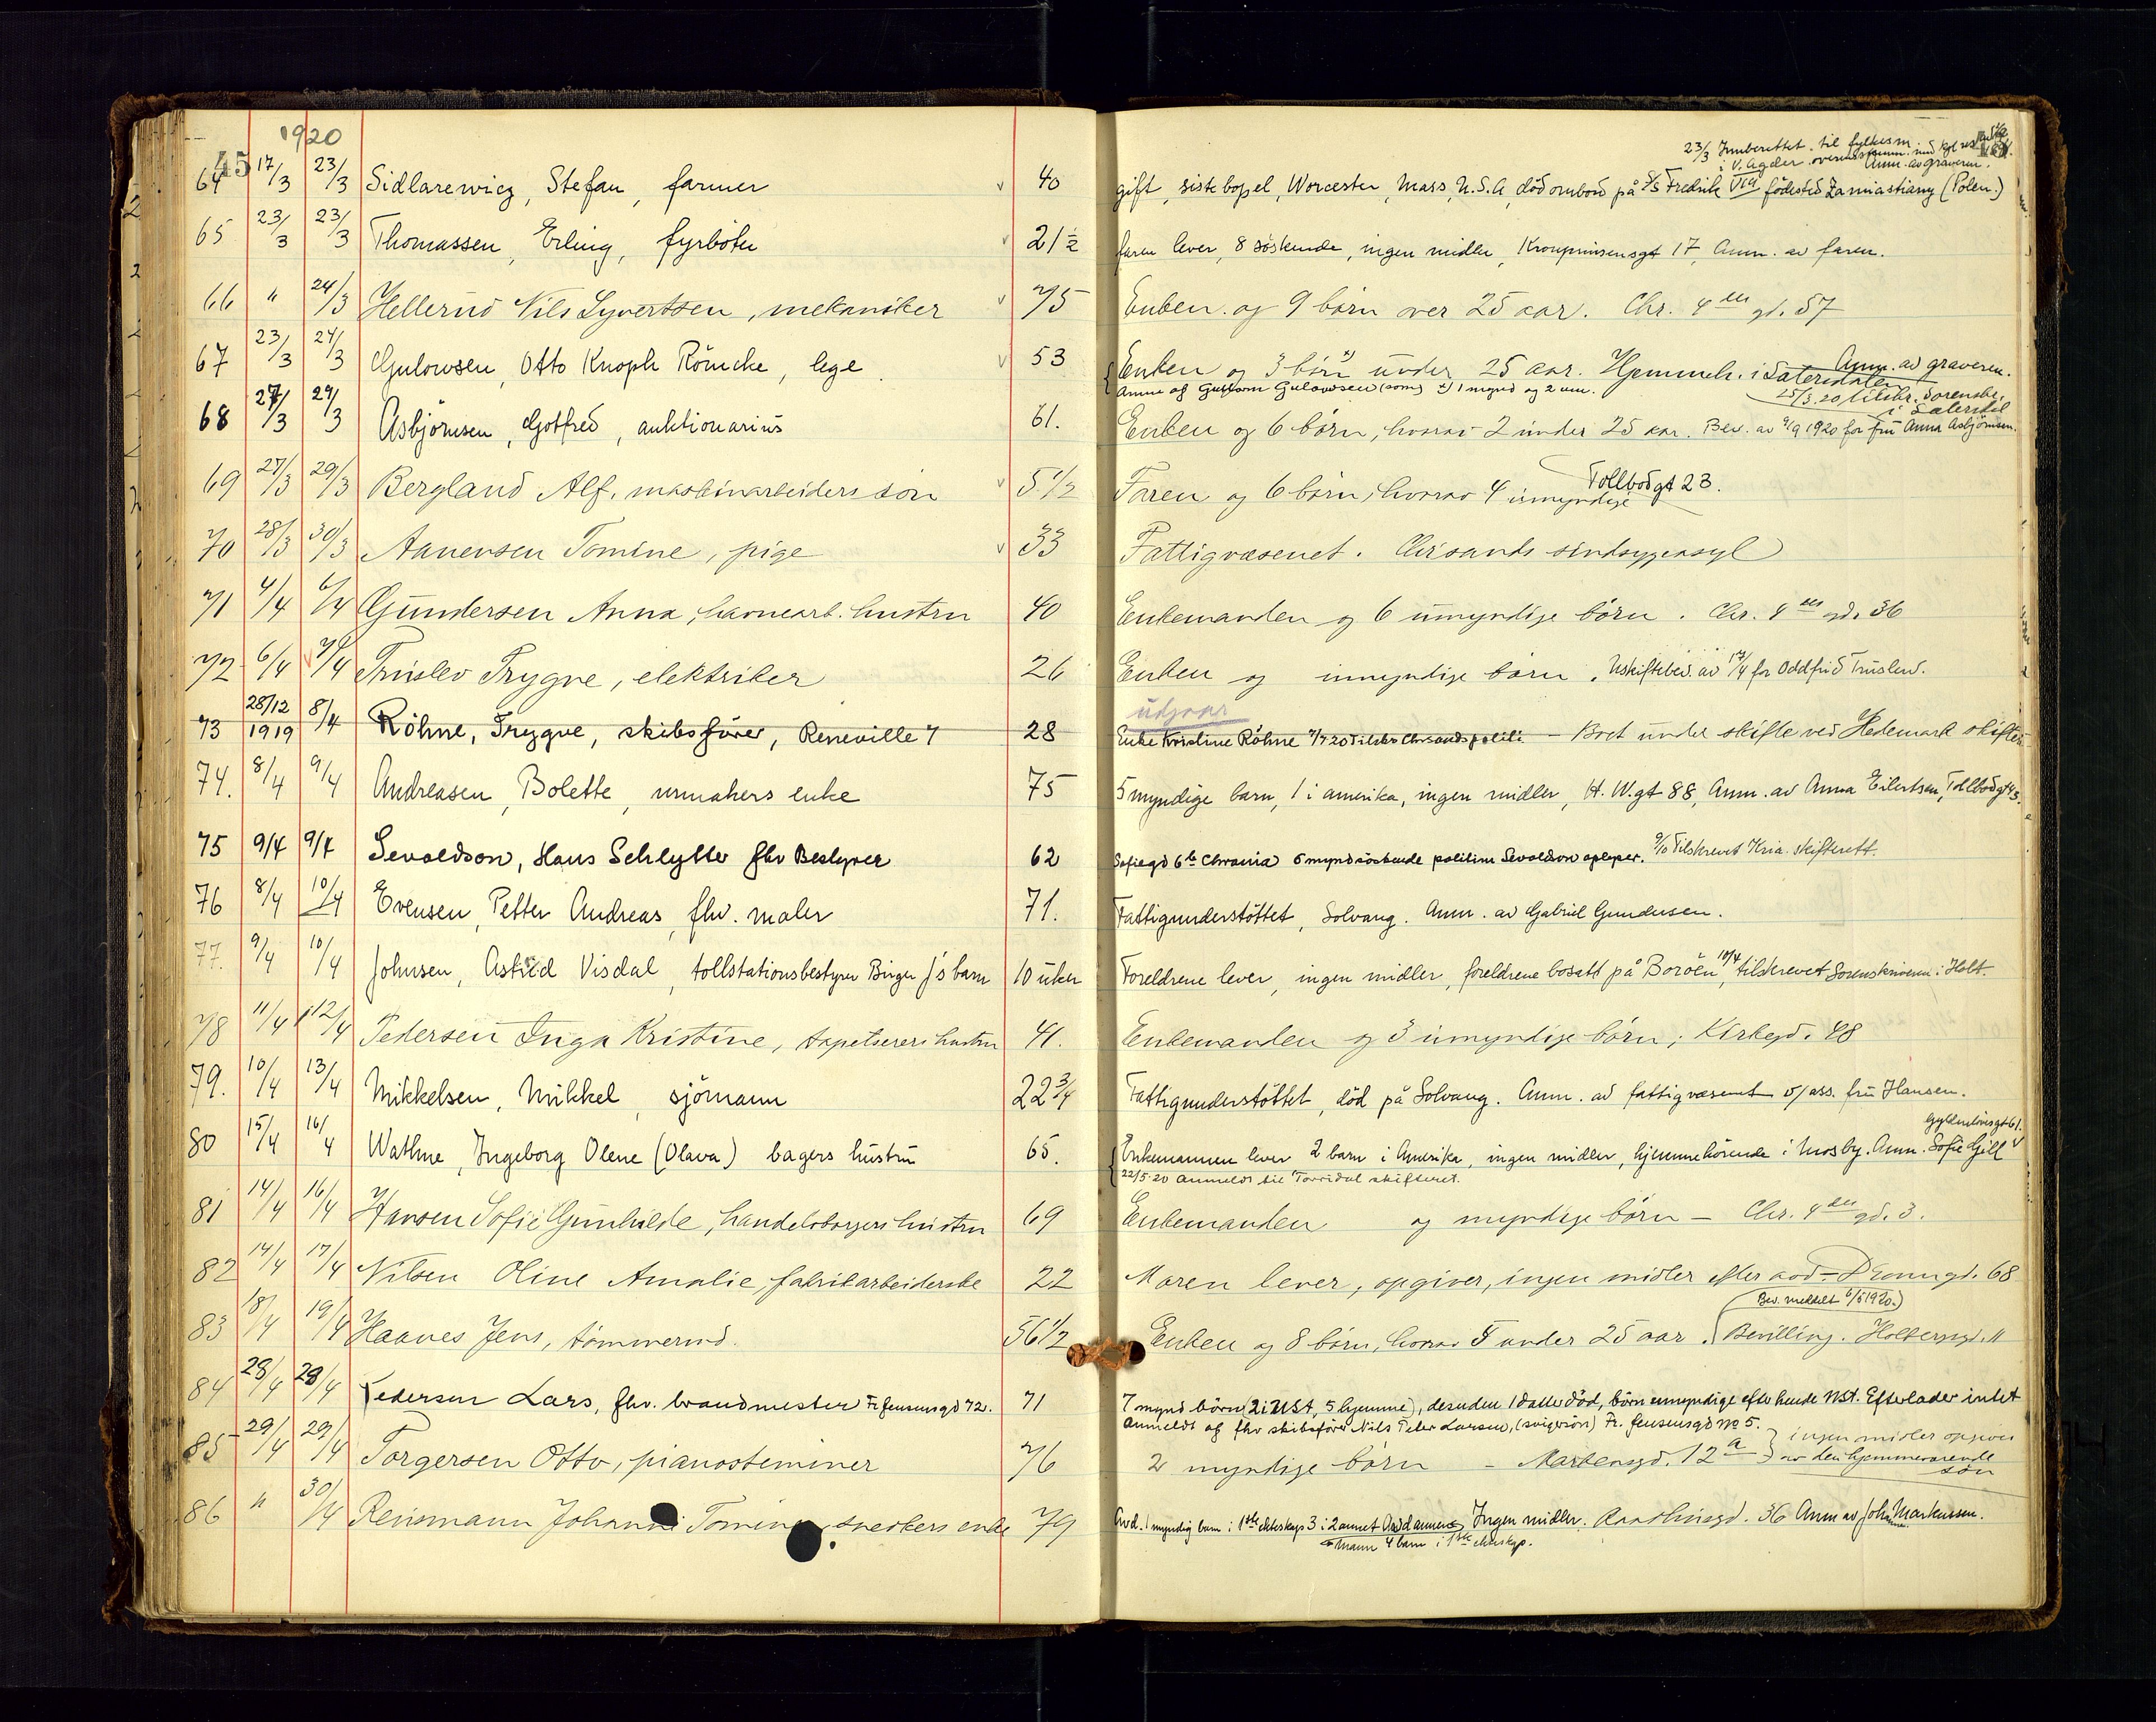 1920
45
23/3 Innberettet til fylkesm.
i V. Agder
Anm. av graveren.
64 17/3 23/3 Sidlarewicz, Stefan, farmer 40 gift, siste bopel, Worcester, Mass, U.S.A, död ombord på S/S Fredrik VIII födested Zamiastiany (Polen.)
65 23/3 23/3 Thomassen, Erling, fyrböter 21 1/2 faren lever, 8 söskende, ingen midler, Kronprinsensgt 17, Anm. av faren.
66 " 24/3 Hellerud Nils Syvertsen, mekaniker 75 Enken og 9 börn over 25 aar. Chr. 4des gt. 57
67 23/3 24/3 Gulowsen, Otto Knoph Römcke, lege 53 Enken og 3 börn x) under 25 aar. Hjemmeh. i Sætersdalen Anm. av graveren.
Anme af Guttorm Gulowsen (sønn) x) 1 mynd og 2 um.
25/3.20 tilskr. Sorenskr. i Sætersdal
68 27/3 29/3 Asbjörnsen, Gotfred, auktionarius 61. Enken og 6 börn, hvorav 2 under 25 aar. Bev. av 9/9 1920 for fru Anna Asbjörnsen.
69 27/3 29/3 Bergland Alf, maskinarbeiders sön 5 1/2 Faren og 6 börn, hvorav 4 umyndige Tollbodgt 23.
70 28/3 30/3 Aanensen Tomine, pige 33 Fattigvæsenet. Chr.sands sindsygeasyl
71 4/4 6/4 Gundersen Anna, havnearb. hustru 40 Enkemanden og 6 umyndige börn. Chr. 4des gd. 36
72 6/4 7/4 Truslev Trygve, elektriker 26 Enken og umyndige barn. Uskiftebev. av 17/4 for Oddfrid Truslew.
utgaar
73 28/12 1919 8/4 Röhne, Trygve, skibsförer, Reneville 7 28 Enke Kristine Röhne 7/7 20 Tilskr Chrsands politi - Boet under skifte ved Hedemark skifter
74. 8/4 9/4 Andreasen, Bolette, urmakers enke 75 5 myndige barn, 1 i amerika, ingen midler, H. W.gt 88, Anm. av Anna Eilertsen, Tollbodgt 43.
75 9/4 9/4 Sevaldson, Hans Schlytter fhv Bestyrer 62 Sofiegd 6b Chrania 5 mynd söskende politim Sevaldson opløper. 9/10 Tilskrevet Kria. skifterett.
76 8/4 10/4 Evensen, Petter Andreas, fhv. maler 71. Fattigunderstöttet, Solvang. Anm. av Gabriel Gundersen.
77. 9/4 10/4 Johnsen, Astrid Visdal, tollstationsbestyrer Birger J's barn 10 uker Foreldrene lever, ingen midler, foreldrene bosatt på Boröen, 10/4 tilskrevet Sorenskriveren i Holt.
78 11/4 12/4 Pedersen Inga Kristine, tapetserers hustru 41. Enkemanden og 3 umyndige börn; Kirkegd. 48
79. 10/4 13/4 Mikkelsen, Mikkel, sjömann 22 3/4 Fattigunderstöttet, död på Solvang. Anm. av fattigvæsenet v/ ass. fru Hansen.
80 15/4 16/4 Wathne, Ingeborg Olene (Olava) bagers hustru 65. Enkemannen lever 2 barn i Amerika, ingen midler, hjemmehörende i Mosby. Anm. Sofie Gjill Gyldenlövesgt 61.
22/5.20 anmeldt til Torridal skifteret.
81 14/4 16/4 Hansen Sofie Gunhilde, handelsborgers hustru 69 Enkemanden og myndige börn - Chr. 4des gd. 3.
82 14/4 17/4 Nilsen Oline Amalie, fabrikarbeiderske 22 Moren lever, opgiver, ingen midler efter avd - Dronngd. 68
83 18/4 19/4 Haanes Jens, tömmermd. 56 1/2 Enken og 8 börn, hvorav 5 under 25 aar. Bevilling. Holbergsgd. 11
Bev. meddelt 6/5 1920.
84 28/4 28/4 Pedersen Lars, fhv. brandmester Fr. Jensensgd 72. 71 7 mynd börn (2 i USA, 5 hjemme), desuden 1 datter död, börn umyndige efter hende USA. Efterlader intet
Anmeldt af fhv skibsförer Nils Peter Larsen, (svigersön) Fr. Jensensgd No 5.
85 29/4 29/4 Torgersen Otto, pianostemmer 76 2 myndige börn - Markensgd. 12a ingen midler opgives av den hjemmeværende sön
86 " 30/4 Reinsmann Johanne Tomine, snedkers enke 79 Avd. 1 myndig barn i 1ste ekteskap 3 i 2annet. Ingen midler. Raadhusgd. 36 Anm av Johanne Markussen.
mann 4 barn i 1ste ekteskap.